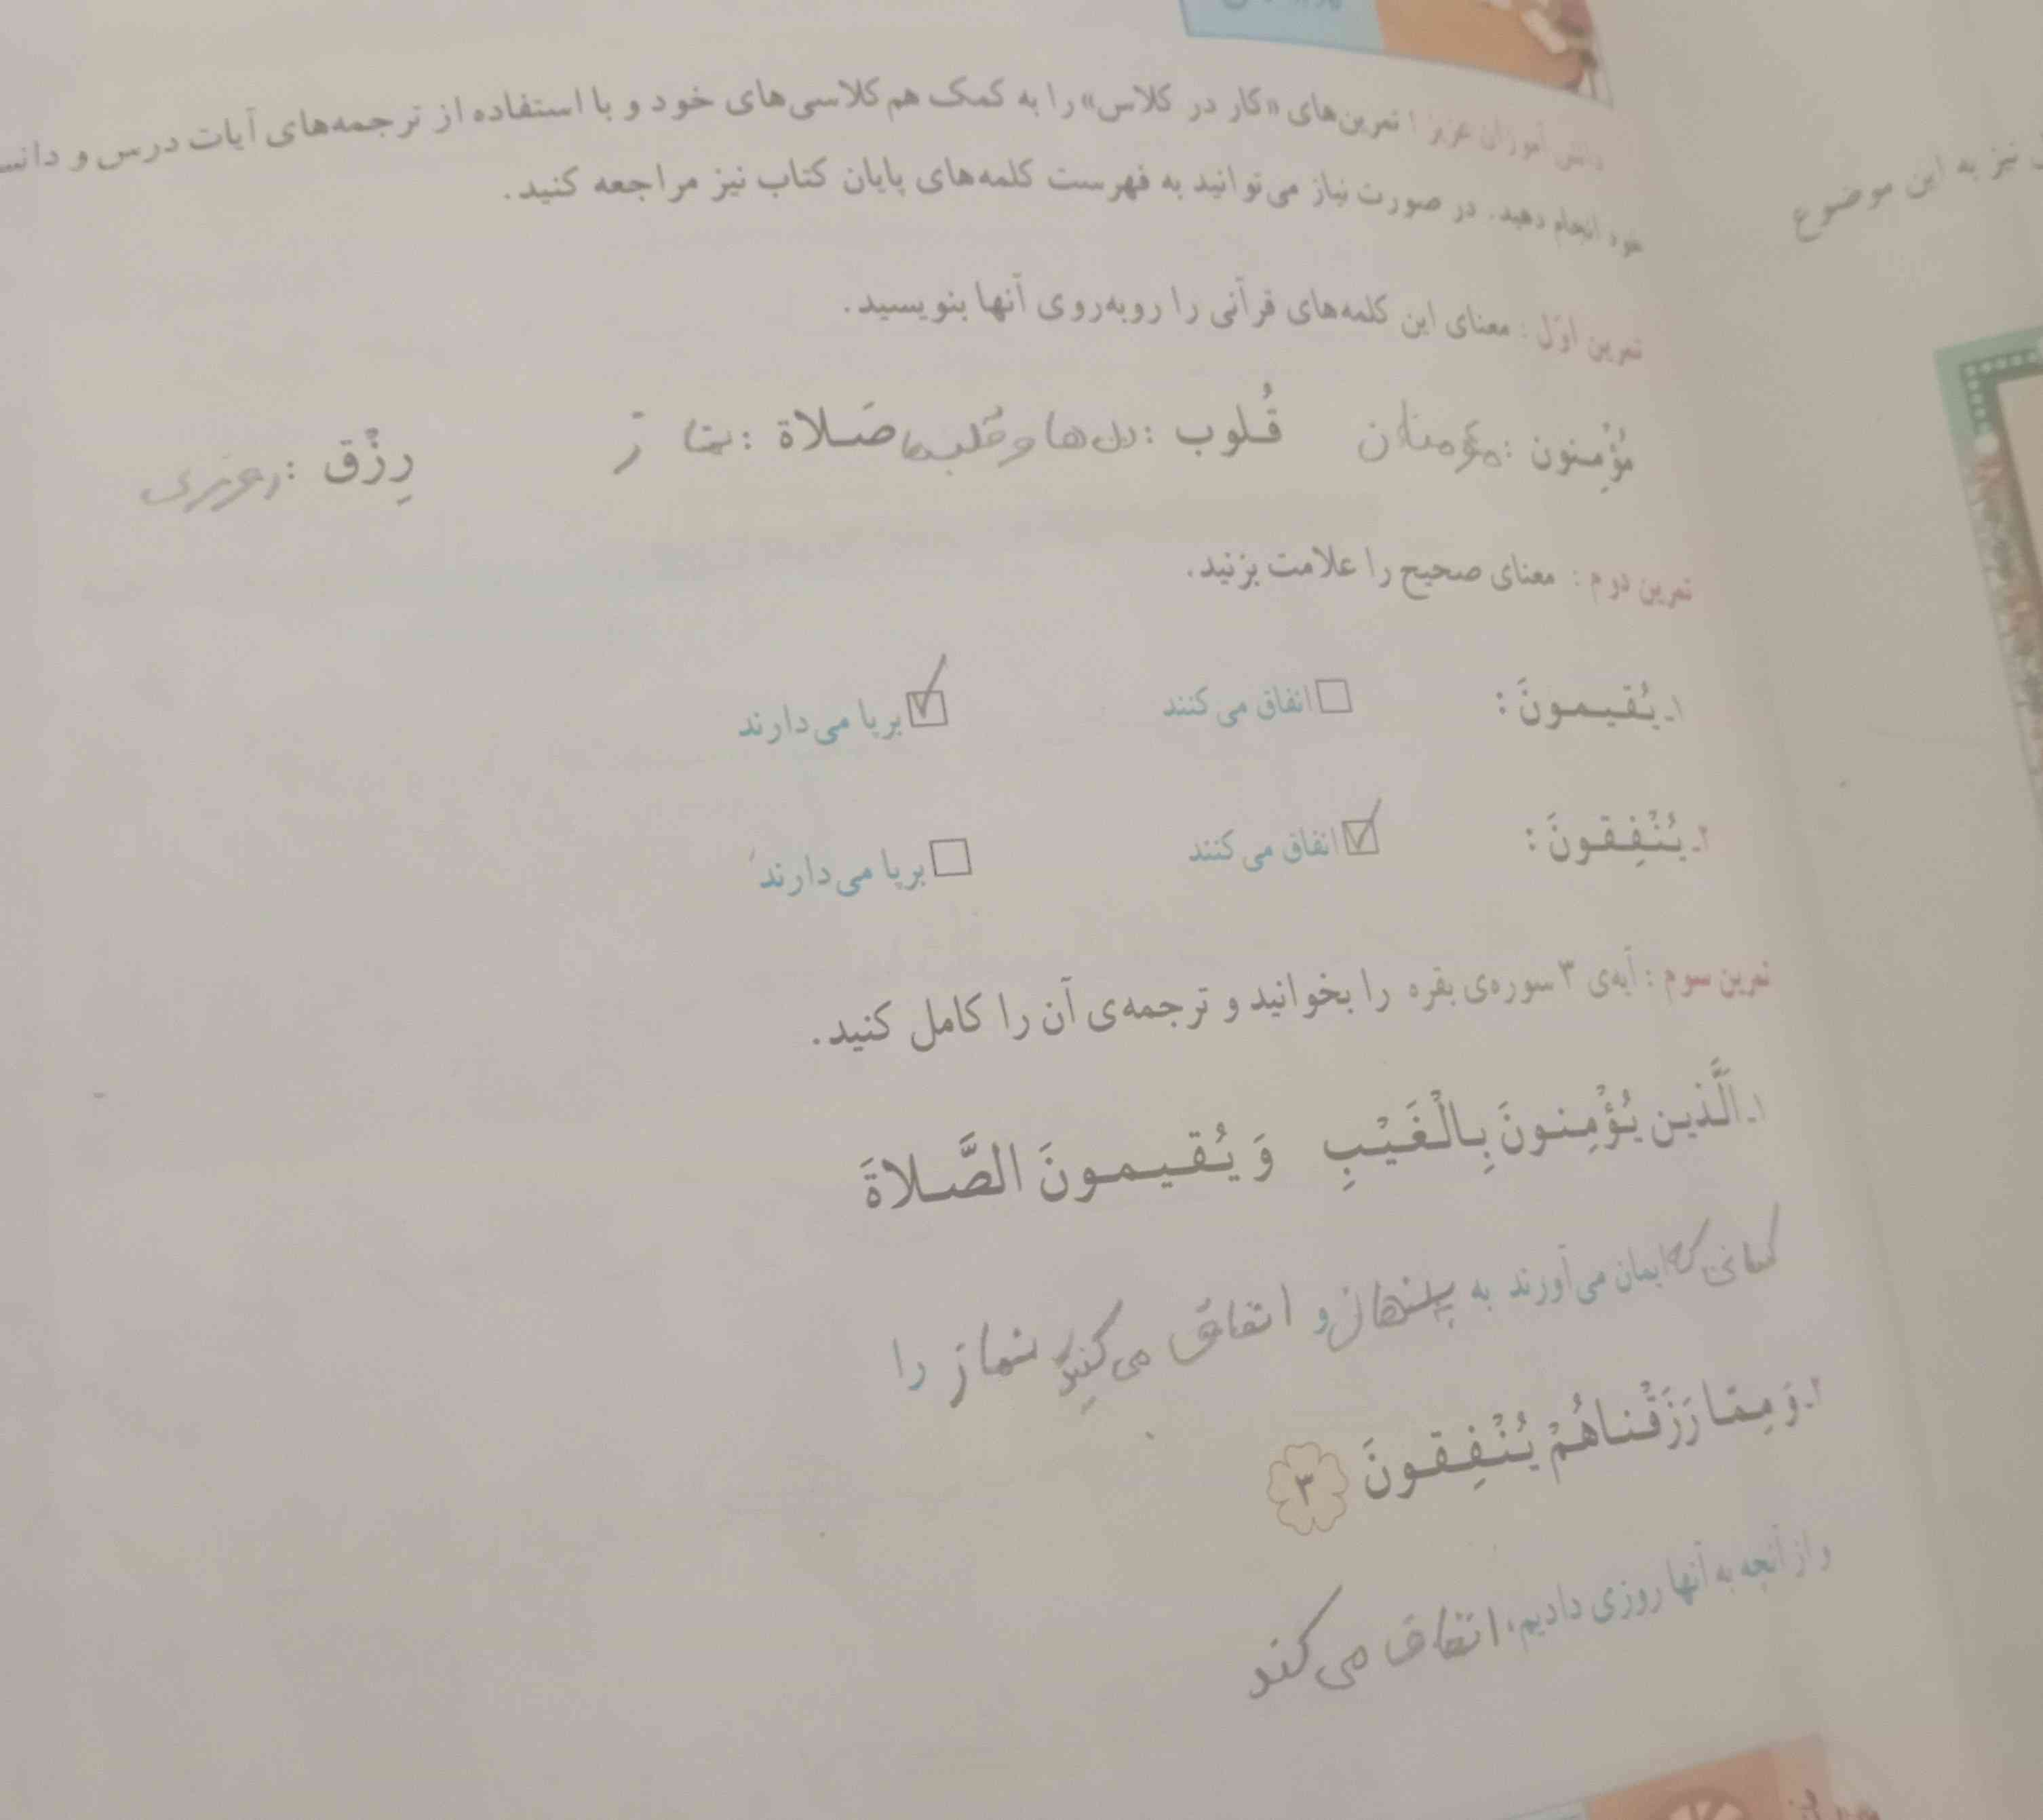 دانش آموزان عزیز ! تمرین‌های «کار در کلاس» را به کمک هم کلاسی‌های خود و با استفاده از ترجمه‌های آیات درس و
خود انجام دهید. در صورت نیاز می‌توانید به فهرست کلمه‌های پایان کتاب نیز مراجعه کنید.
تمرین اوّل : معنای این کلمه‌های قرآنی را روبه‌روی آنها بنویسید.
مُؤْمِنون : مؤمنان قُلوب : دل ها و قلب ها صَلاة : نماز رِزْق : روزی
تمرین دوم : معنای صحیح را علامت بزنید.
۱ـ یُقیمونَ : انفاق می‌کنند برپا می‌دارند
۲ـ یُنْفِقونَ : انفاق می‌کنند برپا می‌دارند
تمرین سوم : آیه‌ی ۳ سوره‌ی بقره را بخوانید و ترجمه‌ی آن را کامل کنید.
۱ـ اَلَّذین یُؤْمِنونَ بِالْغَیْبِ وَ یُقیمونَ الصَّلاةَ
کسانی که ایمان می‌آورند به پنهان و انفاق می‌کنند نماز را
۲ـ وَ مِمّا رَزَقْناهُمْ یُنْفِقونَ ۳
و از آنچه به آنها روزی دادیم، انفاق می‌کند
نیز به این موضوع